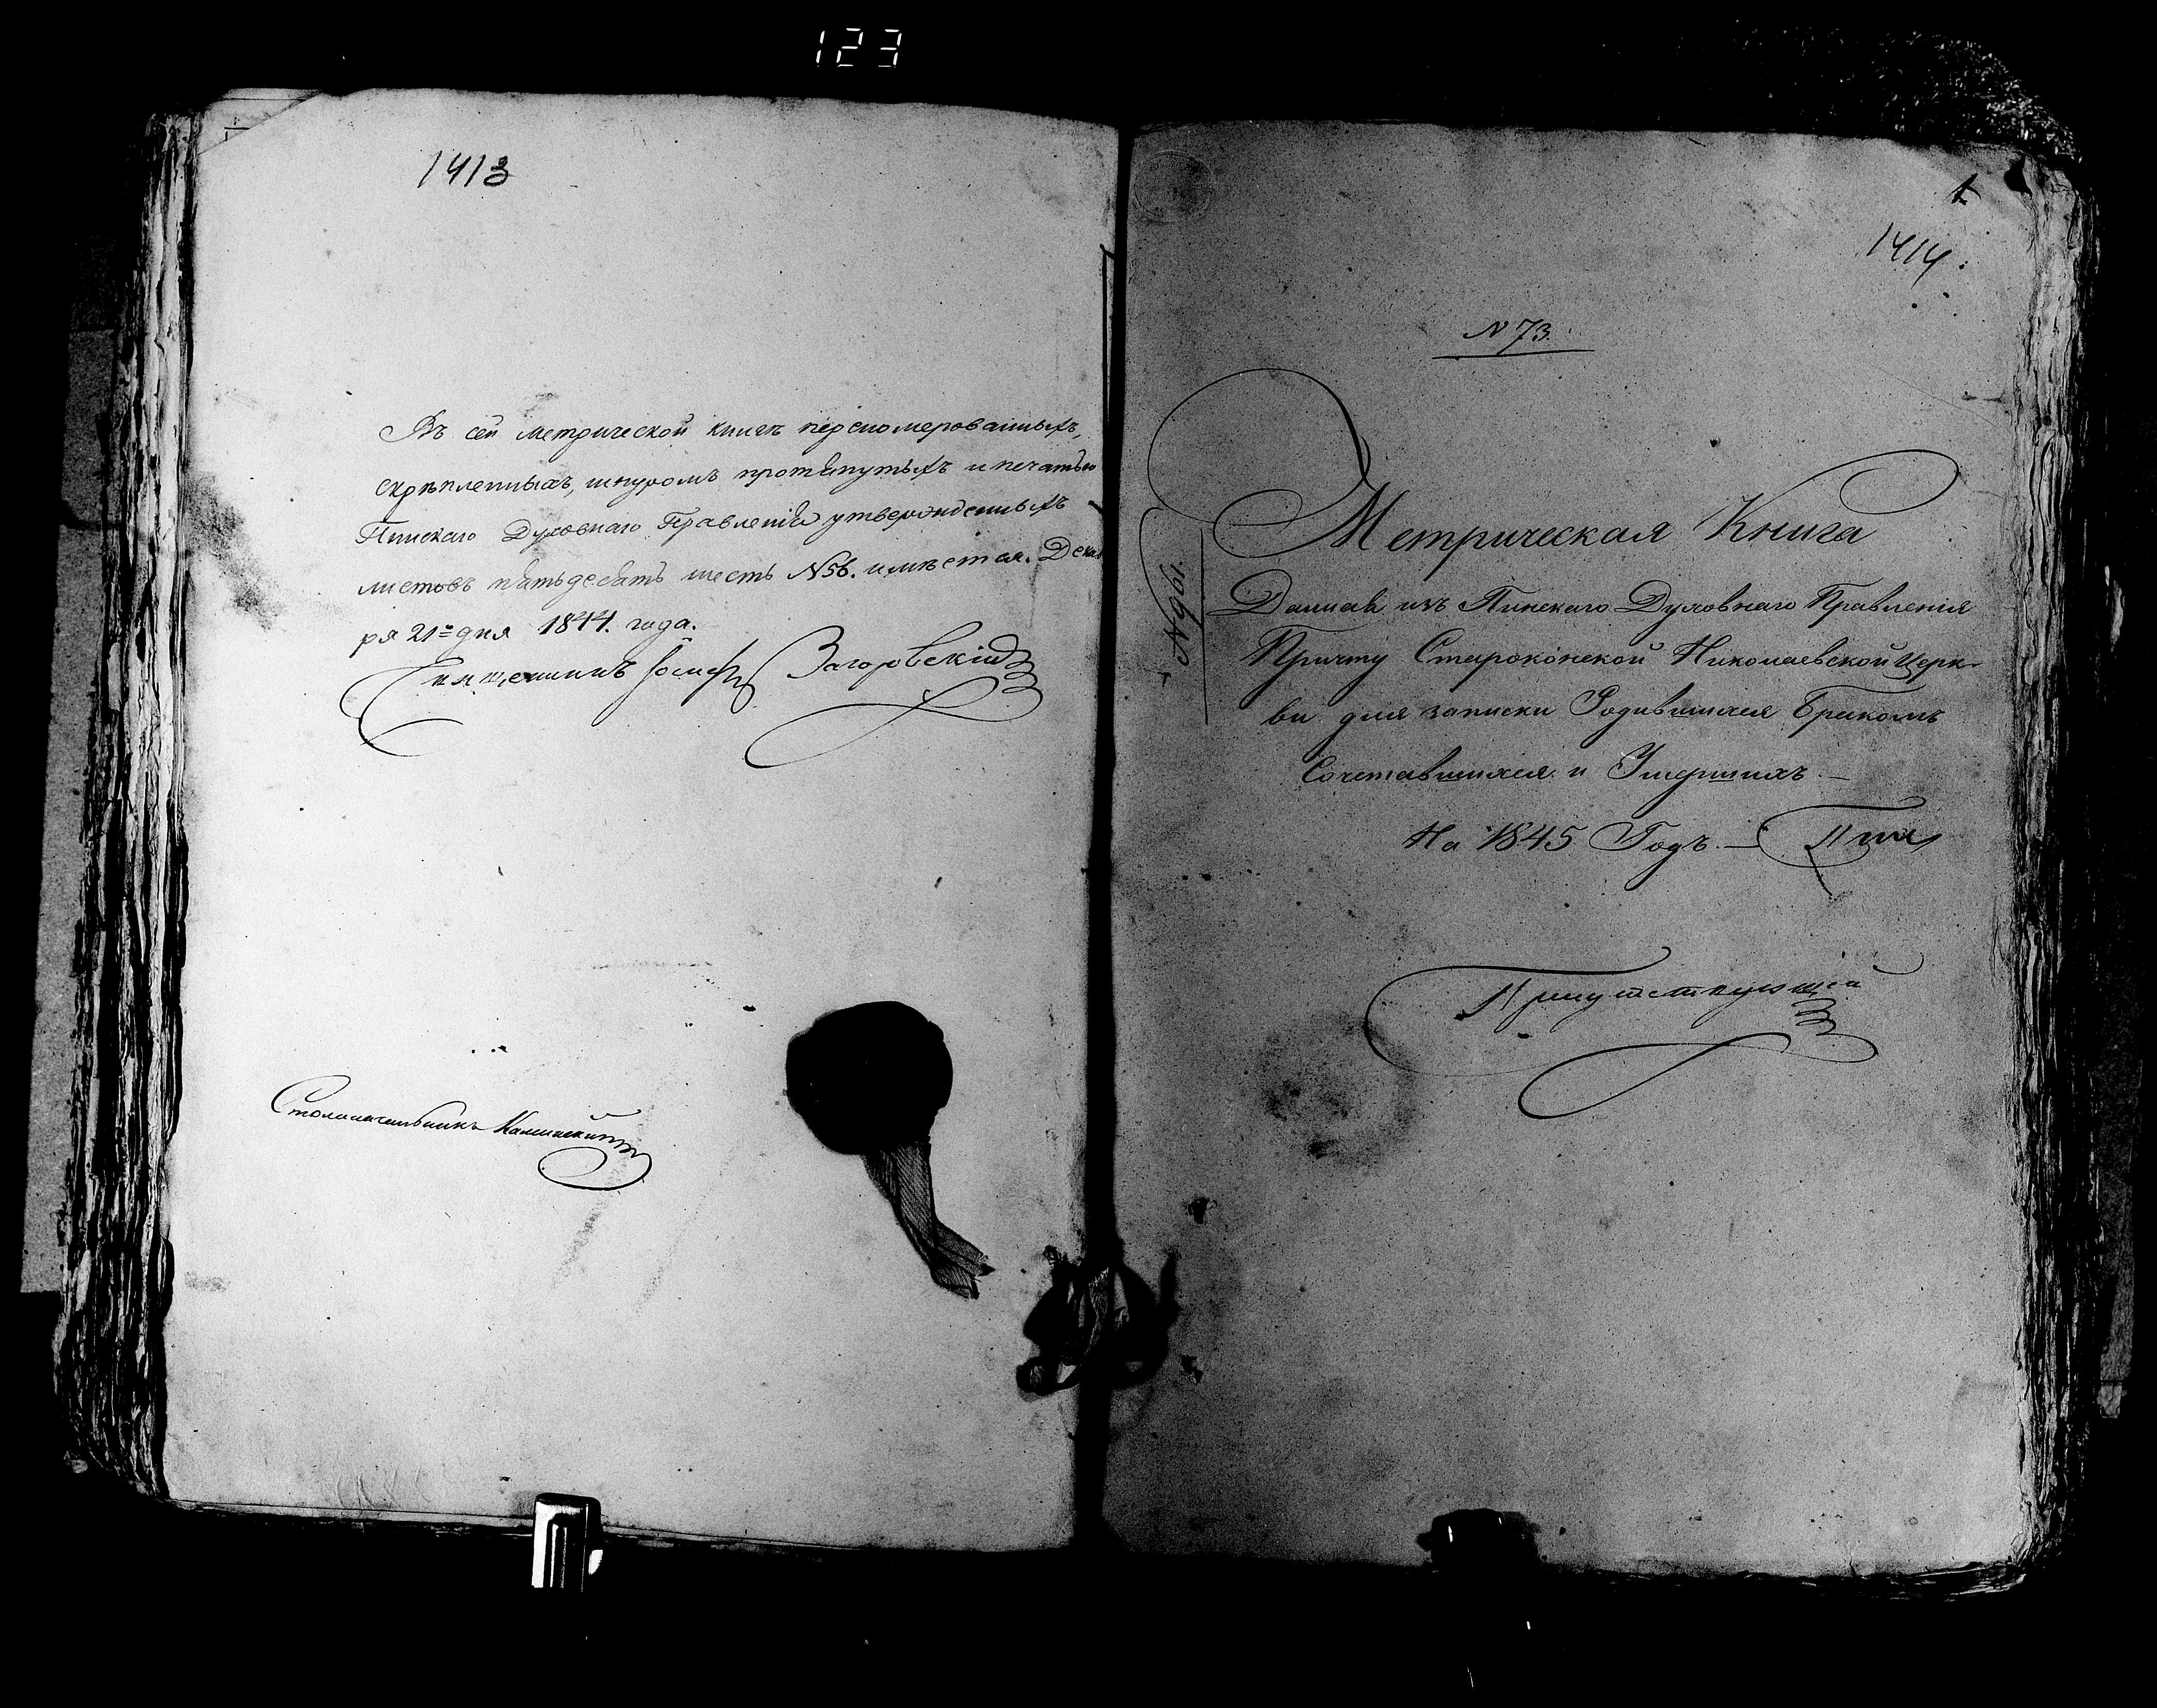 123
1413
Въ сей метрической книгѣ перенумерованныхъ,
скрѣпленныхъ, шнуромъ протянутыхъ и печатью
Пинскаго Духовнаго Правленія утвержденныхъ
листовъ пятьдесятъ шесть №56. имѣется. Декаб
ря 21го дня 1844. года.
Священникъ Іосифъ Загоровскій
Столоначальникъ Каминскій
1
1414.
N 73.
Метрическая Книга
Данная изъ Пинскаго Духовнаго Правленія
Причту Староконской Николаевской Церк-
ви для записки Родившихся Бракомъ
Сочетавшихся и Умершихъ.—
На 1845 Годъ.—
Присутствующій